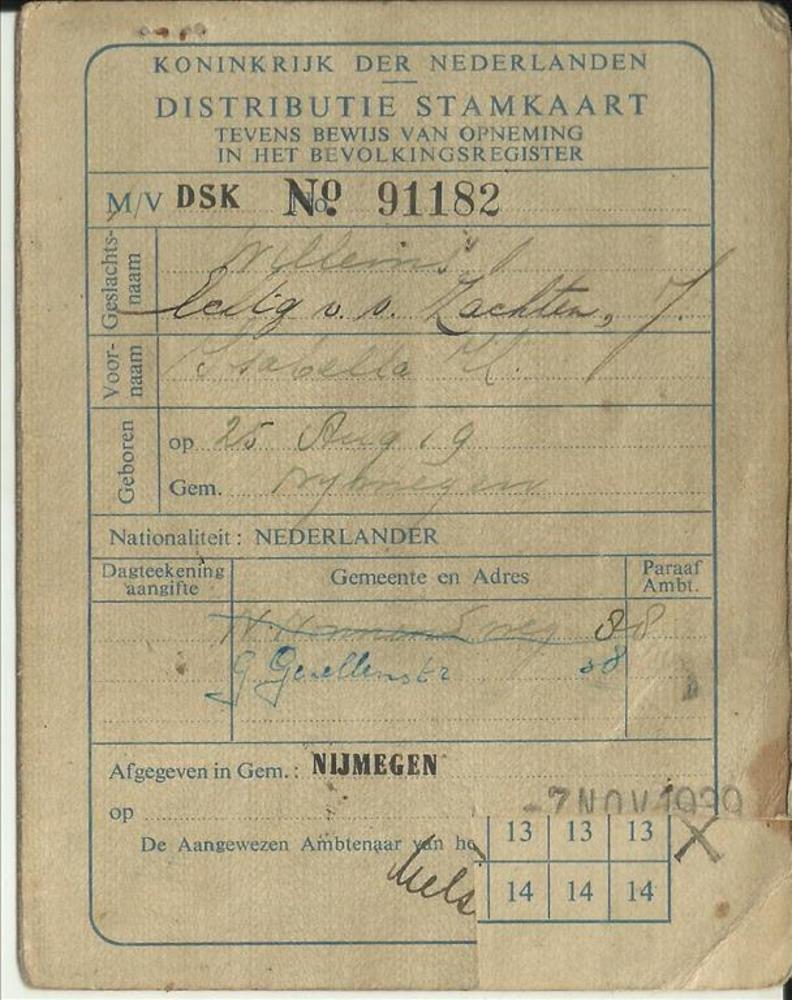 KONINKRIJK DER NEDERLANDEN
DISTRIBUTIE STAMKAART
TEVENS BEWIJS VAN OPNEMING
IN HET BEVOLKINGSREGISTER
M/V DSK No. 91182
Geslachts-
naam
Willems
v. v. Zachten, J.
Voor-
naam
Isabella H.
Geboren
op 25 Aug 19
Gem. Nijmegen
Nationaliteit : NEDERLANDER
Dagteekening
aangifte
Gemeente en Adres
Paraaf
Ambt.
weg 38
G. Gezellenstr 38
Afgegeven in Gem. : NIJMEGEN
op -7 NOV 1939
De Aangewezen Ambtenaar van he
13 13 13 X
14 14 14